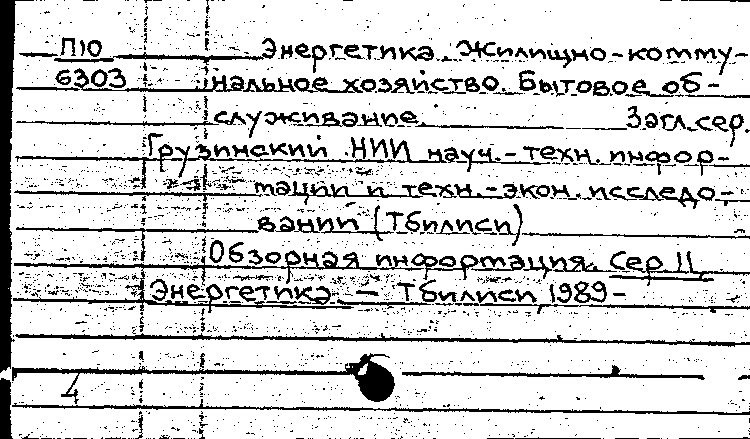 П10 Энергетика. Жилищно-комму-
6303 нальное хозяйство. Бытовое об-
служивание. Загл.сер.
Грузинский НИИ науч.-техн. инфор-
мации и техн.-экон. исследо-
ваний (Тбилиси)
Обзорная информация. Сер. 11,
Энергетика. — Тбилиси, 1989-
4